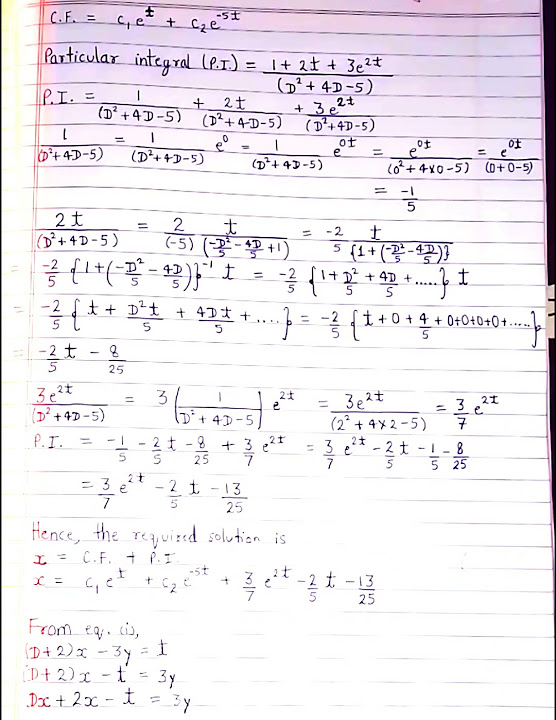 C.F. = c₁e^t + c₂e^-5t
Particular integral (P.I) = 1 + 2t + 3e^2t / (D² + 4D - 5)
P.I. = 1/(D² + 4D - 5) + 2t/(D² + 4D - 5) + 3e^2t/(D² + 4D - 5)
1/(D² + 4D - 5) = 1/(D² + 4D - 5) e^0 = 1/(D² + 4D - 5) e^0t = e^0t/(0² + 4×0 - 5) = e^0t/(0+0-5)
= -1/5
2t/(D² + 4D - 5) = 2/(-5) t/(-D²/5 - 4D/5 + 1) = -2/5 t/{1 + (-D²/5 - 4D/5)}
-2/5 {1 + (-D²/5 - 4D/5)}^-1 t = -2/5 {1 + D²/5 + 4D/5 + .....} t
-2/5 {t + D²t/5 + 4Dt/5 + ....} = -2/5 {t + 0 + 4/5 + 0+0+0+0+.....}
= -2/5 t - 8/25
3e^2t/(D² + 4D - 5) = 3 (1/(D² + 4D - 5)) e^2t = 3e^2t/(2² + 4×2 - 5) = 3/7 e^2t
P.I. = -1/5 - 2/5 t - 8/25 + 3/7 e^2t = 3/7 e^2t - 2/5 t - 1/5 - 8/25
= 3/7 e^2t - 2/5 t - 13/25
Hence, the required solution is
x = C.F. + P.I.
x = c₁e^t + c₂e^-5t + 3/7 e^2t - 2/5 t - 13/25
From eq. (i),
(D+2)x - 3y = t
(D+2)x - t = 3y
Dx + 2x - t = 3y